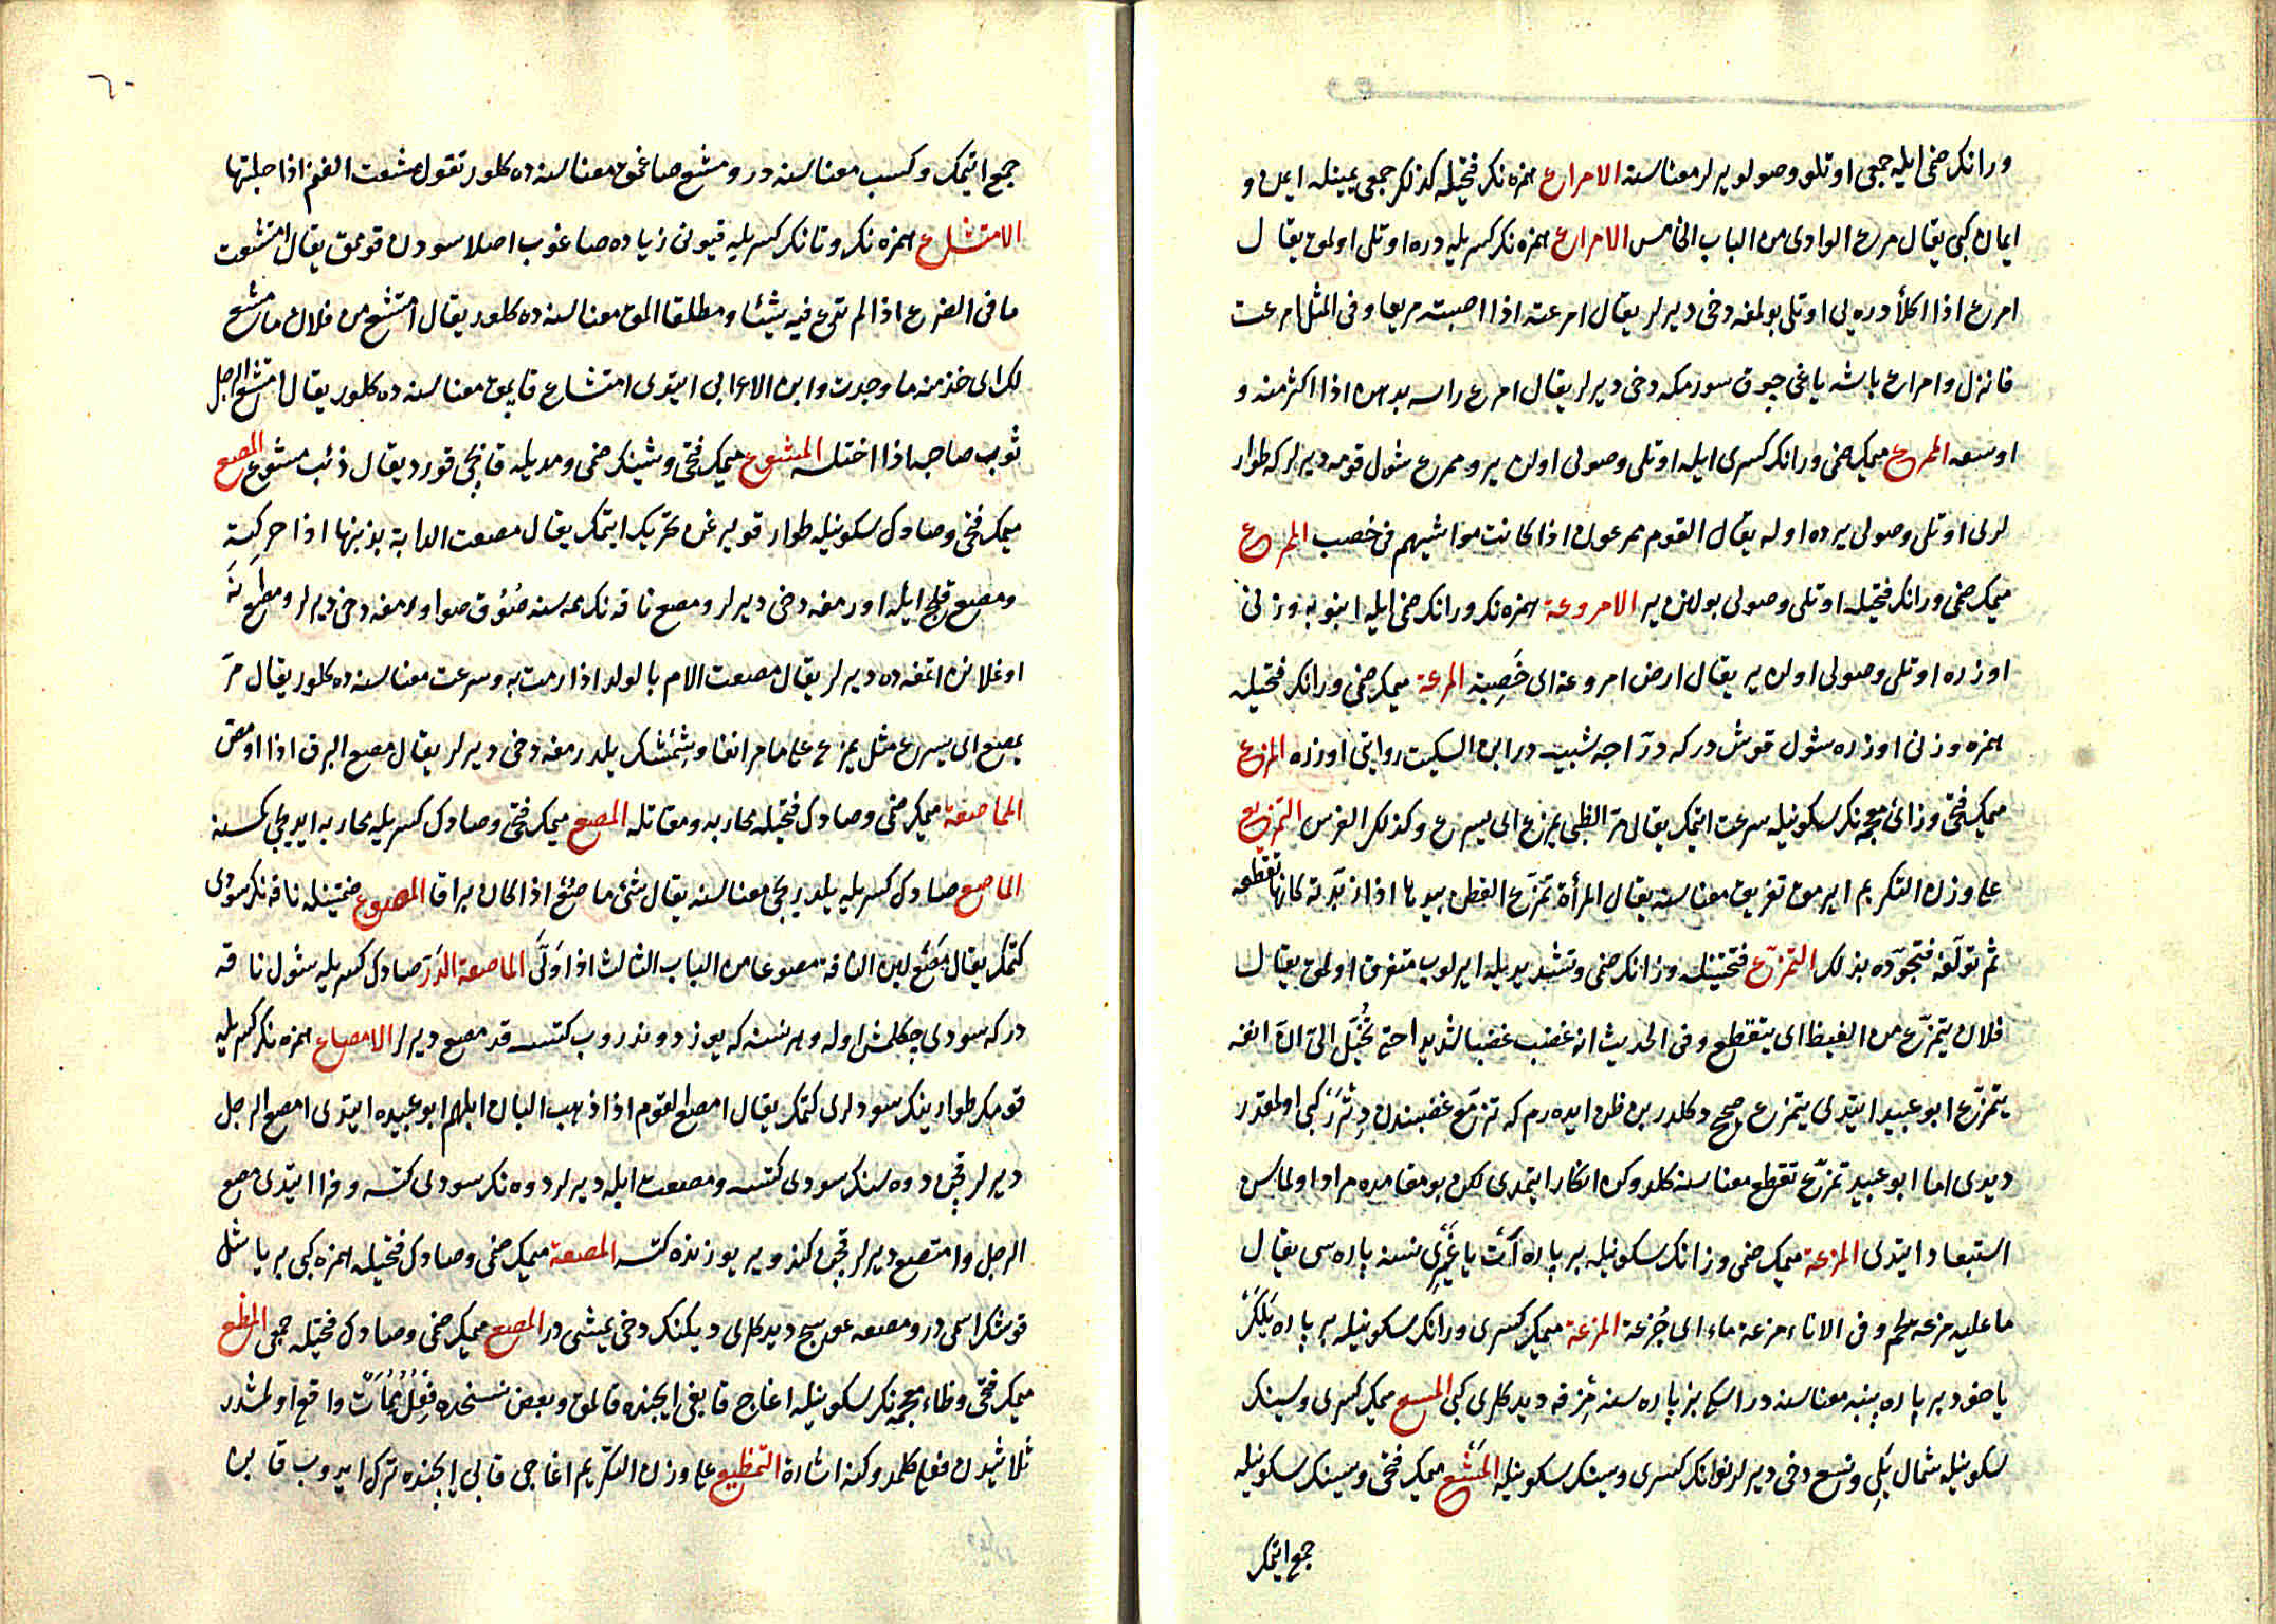 ورانك ضمى ايله جمعى اوتلو وصولو يرلر معناسنه الامراع همزه نك فتحيله كذلك جمعى يمينله ايمن و
ايمان كبى يقال مرع الوادى من الباب الخامس الامراع همزه نك كسريله دره اوتلى اولمق يقال
امرع اذا اكلأ دره يى اوتلى بولمغه دخى ديرلر يقال امرعته اذا اصبته مريعا وفى المثل امرعت
فانزل وامراع باشه ياغى چوق سورمكه دخى ديرلر يقال امرع راسه بدهن اذا اكثر منه و
اوسعه الممرع ميمك ضمى ورانك كسرى ايله اوتلى وصولى اولن ير وممرع شول قومه ديرلر كه طوار
لرى اوتلى وصولى يرده اوله يقال القوم ممرعون اذا كانت مواشيهم فى خصب الممرع
ميمك ضمى ورانك فتحيله اوتلى وصولى بولنن ير الامروعة همزه نك ورانك ضمى ايله انبوبه وزنى
اوزره اوتلى وصولى اولن ير يقال ارض امروعة اى خَصِبة المرعة ميمك ضمى ورانك فتحيله
همزه وزنى اوزره شول قوش در كه درّاجه شبيه در ابن السكيت روايتى اوزره المزع
ميمك فتحى وزائ معجمه نك سكونيله سرعت ايتمك يقال مرّ الظبى يمزع اى يسرع وكذلك الفرس التمزيع
على وزن التكريم ايرمق تفريق معناسنه يقال المرأة تمزّع القطن بيديها اذا زبّدته كانها تقطعه
ثم تؤلّفه فتجوّده بذلك التمزّع فتحتينله وزانك ضمى وتشديديله ايرلوب متفرق اولمق يقال
فلان يتمزّع من الغيظ اى يتقطع وفى الحديث انه غضب غضبا شديدا حتى تُخُيّل الىّ انّ انفه
يتمزّع ابو عبيد ايتدى يتمزع صحيح دكلدر بن ظن ايدەرم كه ترمّع غضبندن دِتْرَرْ كبى اولمقدر
ديدى اما ابو عبيد تمزّع تقطع معناسنه كلدوكن انكار ايتمدى لكن بو مقامده مراد اولماسن
استبعاد ايتدى المزعة ميمك ضمى وزانك سكونيله بر پاره اَتْ ياغيرى نسنه پاره سى يقال
ما عليه مزعة لحم وفى الاناء مزعة ماء اى جُزعة المزعة ميمك كسرى ورانك سكونيله بر پاره يَلَكْ
ياخود بر پاره پنبه معناسنه در اسكى بز پاره سنه مِزقه ديدكلرى كبى المسع ميمك كسرى وسينك
سكونيله شمال يَلِى ونسع دخى ديرلر نونك كسرى وسينك سكونيله المَشْع ميمك فتحى وسينك سكونيله
جمع ايتمك
٦٠
جمع ايتمك وكسب معناسنه در ومشع صاغمق معناسنه ده كلور تقول مشعت الغنم اذا حلبتها
الامتشاع همزه نك وتانك كسريله قيونى زياده صاغوب اصلا سودن قومق يقال امتشعت
ما فى الضرع اذا لم تدع فيه شيئا ومطلقا المق معناسنه ده كلور يقال امتشع من فلان ما مشع
لك اى خذ منه ما وجدت وابن الاعرابى ايتدى امتشاع قاپمق معناسنه ده كلور يقال امتشع الرجل
ثوب صاحبه اذا اختلسه الممشوع ميمك فتحى وشينك ضمى ومديله قاپجى قورد يقال ذئب مشوع المصع
ميمك فتحى وصادك سكونيله طوار قويرغن تحريك ايتمك يقال مصعت الدابة بذنبها اذا حركته
ومصع قلج ايله اورمغه دخى ديرلر ومصع ناقه نك ممه سنه صُوُق صو اورمغه دخى ديرلر ومصع نَه
اوغلانن اتمغه ده ديرلر يقال مصعت الام بالولد اذا رمت به وسرعت معناسنه ده كلور يقال مرّ
يمصع اى يسرع مثل يمزع على ما مر انفا وشِمْشك يلدرمغه دخى ديرلر يقال مصع البرق اذا اومض
المماصعة ميمك ضمى وصادك فتحيله محاربه ومقاتله المصع ميمك فتحى وصادك كسريله محاربه ايديجى كسنه
الماصع صادك كسريله يلديريجى معناسنه يقال شئ ماصعٌ اذا كان براقا المصوع ضمتينله ناقه نك سودى
كتمك يقال مَصَعَ لبن الناقة مصوعا من الباب الثالث اذا وَلّى الماصعة الدَرّ صادك كسريله شول ناقه
در كه سودى چكلمش اوله وهر نسنه كه يوز دوندروب كتسه قد مصع ديرلر الامصاع همزه نك كسريله
قومك طوارينك سودلرى كتمك يقال امصع القوم اذا ذهب البان ابلهم ابو عبيده ايتدى امصع الرجل
ديرلر قچن دوه سنك سودى كتسه ومصعت ابله ديرلر دوه نك سودى كتسه وفرا ايتدى مصع
الرجل وامتصع ديرلر قچن كندو ير يوزنده كتسه المصعة ميمك ضمى وصادك فتحيله همزه كبى بر ياشل
قوشك اسمى در ومصعه عوسج ديدكلرى ديكنك دخى يمشى در المصع ميمك ضمى وصادك فتحيله جمعى المظع
ميمك فتحى وظاء معجمه نك سكونيله اغاج قابغى ايچنده قالمق وبعض نسخده واقع اولمشدر
ثلاثيدن فعلى كلمدوكنه اشارة التمظيع على وزن التكريم اغاجى قابى ايچنده ترك ايدوب قابن